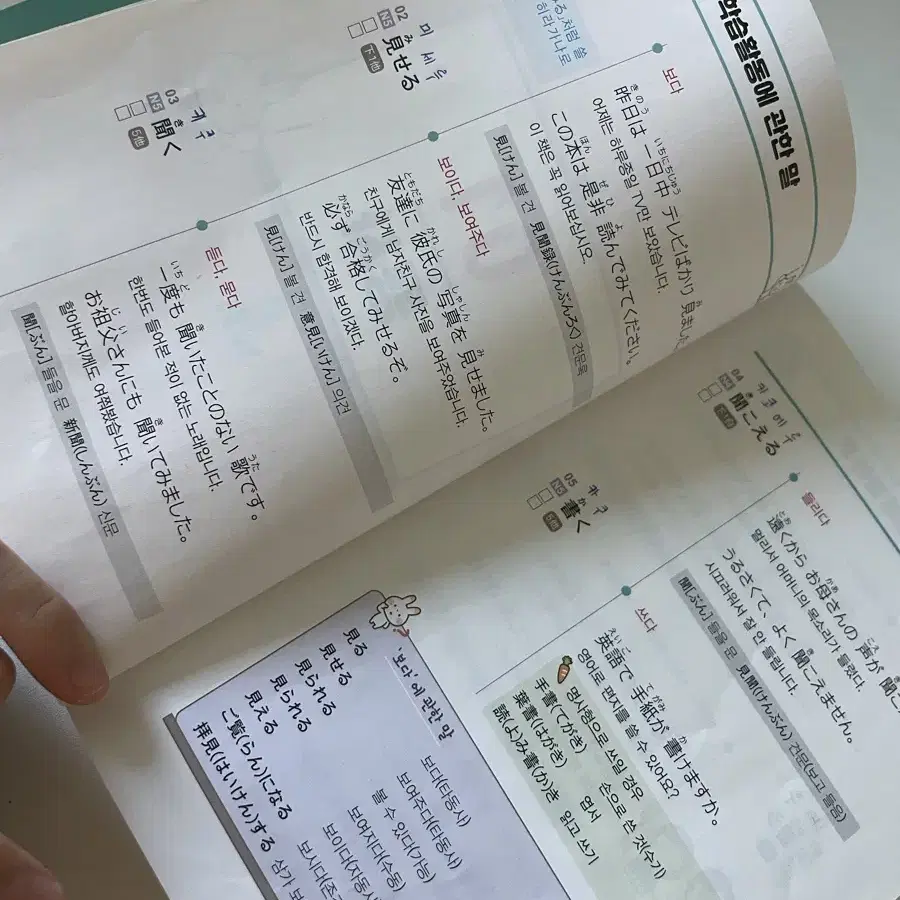 학습활동에 관한 말
る」처럼 쓸
히라가나로
보다
昨日(きのう)は 一日中(いちにちじゅう) テレビばかり 見(み)ました
어제는 하루종일 TV만 보았습니다.
この本(ほん)は 是非(ぜひ) 読(よ)んでみてください。
이 책은 꼭 읽어보십시오.
見[けん] 볼 견 見聞録(けんぶんろく) 견문록
미세루
02 N5 見(み)せる 下1他
보이다, 보여주다
友達(ともだち)に 彼氏(かれし)の 写真(しゃしん)を 見(み)せました。
친구에게 남자친구 사진을 보여주었습니다.
必(かなら)ず 合格(ごうかく)してみせるぞ。
반드시 합격해 보이겠다.
見[けん] 볼 견 意見(いけん) 의견
키쿠
03 N5 聞(き)く 5他
듣다, 묻다
一度(いちど)も 聞(き)いたことのない 歌(うた)です。
한번도 들어본 적이 없는 노래입니다.
お祖父(じい)さんにも 聞(き)いてみました。
할아버지께도 여쭤봤습니다.
聞[ぶん] 들을 문 新聞(しんぶん) 신문
키코에루
04 聞(き)こえる
들리다
遠(とお)くから お母(かあ)さんの 声(こえ)が 聞こ
멀리서 어머니의 목소리가 들렸다.
うるさくて、よく 聞(き)こえません。
시끄러워서 잘 안 들립니다.
聞[ぶん] 들을 문 見聞(けんぶん) 견문(보고 들음)
카쿠
05 N5 書(か)く 5他
쓰다
英語(えいご)で 手紙(てがみ)が 書(か)けますか。
영어로 편지를 쓸 수 있어요?
명사형으로 쓰일 경우
手書(てがき) 손으로 쓴 것(수기)
葉書(はがき) 엽서
読(よ)み書(か)き 읽고 쓰기
'보다'에 관한 말
見る 보다(타동사)
見せる 보여주다(타동사)
見られる 볼 수 있다(가능)
見られる 보여지다(수동)
見える 보이다(자동사
ご覧(らん)になる 보시다(존
拝見(はいけん)する 삼가 보